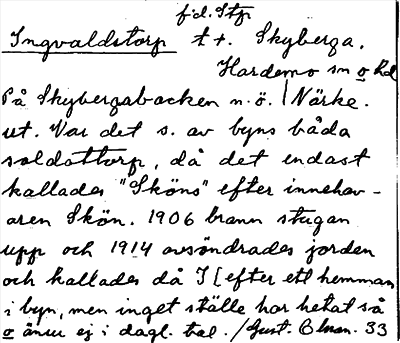 f.d. Stp
Ingvaldstorp t. t. Skyberga.
Hardemo sn o hd
På Skybergabacken n.ö. | Närke.
ut. Var det s. av byns båda
soldattorp, då det endast
kallades "Sköns" efter innehav-
aren Skön. 1906 brann stugan
upp och 1914 avsöndrades jorden
och kallades då I [efter ett hemman
i byn, men inget ställe har hetat så
o ännu ej i dagl. tal. / Gust. 33